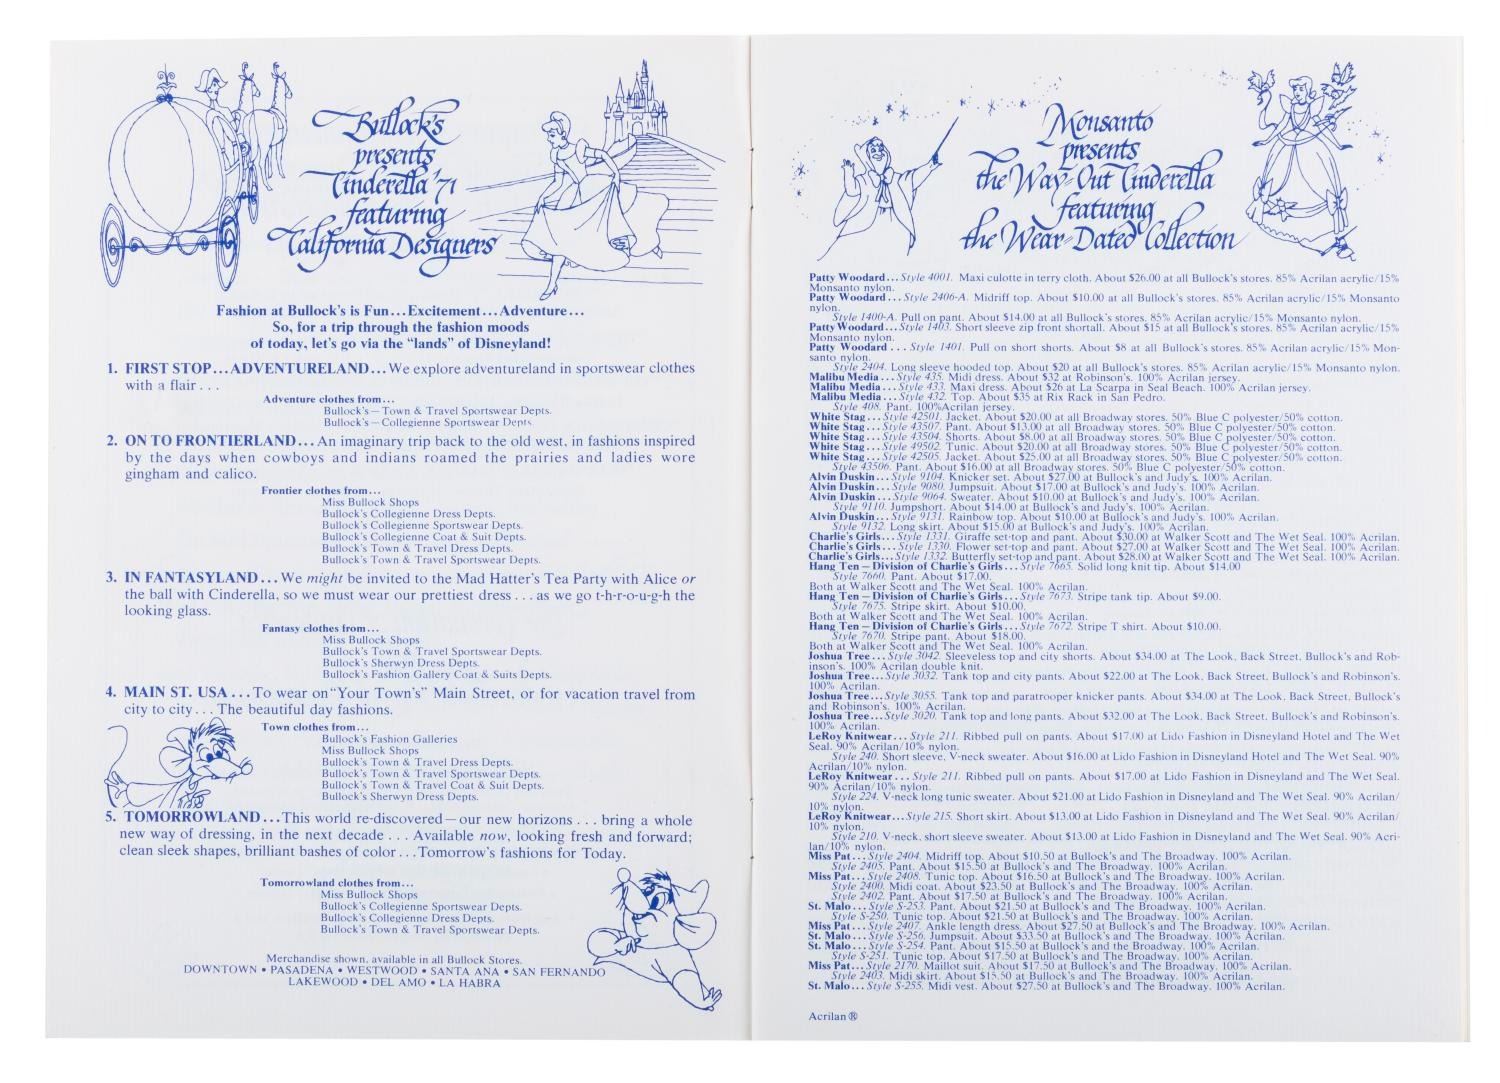 Bullock's
presents
Cinderella '71
featuring
California Designers
Fashion at Bullock's is Fun...Excitement...Adventure...
So, for a trip through the fashion moods
of today, let's go via the "lands" of Disneyland!
1. FIRST STOP...ADVENTURELAND...We explore adventureland in sportswear clothes
with a flair . . .
Adventure clothes from...
Bullock's — Town & Travel Sportswear Depts.
Bullock's — Collegienne Sportswear Depts.
2. ON TO FRONTIERLAND...An imaginary trip back to the old west, in fashions inspired
by the days when cowboys and indians roamed the prairies and ladies wore
gingham and calico.
Frontier clothes from...
Miss Bullock Shops
Bullock's Collegienne Dress Depts.
Bullock's Collegienne Sportswear Depts.
Bullock's Collegienne Coat & Suit Depts.
Bullock's Town & Travel Dress Depts.
Bullock's Town & Travel Sportswear Depts.
3. IN FANTASYLAND...We might be invited to the Mad Hatter's Tea Party with Alice or
the ball with Cinderella, so we must wear our prettiest dress . . . as we go t-h-r-o-u-g-h the
looking glass.
Fantasy clothes from...
Miss Bullock Shops
Bullock's Town & Travel Sportswear Depts.
Bullock's Sherwyn Dress Depts.
Bullock's Fashion Gallery Coat & Suits Depts.
4. MAIN ST. USA...To wear on "Your Town's" Main Street, or for vacation travel from
city to city . . . The beautiful day fashions.
Town clothes from...
Bullock's Fashion Galleries
Miss Bullock Shops
Bullock's Town & Travel Dress Depts.
Bullock's Town & Travel Sportswear Depts.
Bullock's Town & Travel Coat & Suit Depts.
Bullock's Sherwyn Dress Depts.
5. TOMORROWLAND...This world re-discovered—our new horizons . . . bring a whole
new way of dressing, in the next decade . . . Available now, looking fresh and forward;
clean sleek shapes, brilliant bashes of color . . . Tomorrow's fashions for Today.
Tomorrowland clothes from...
Miss Bullock Shops
Bullock's Collegienne Sportswear Depts.
Bullock's Collegienne Dress Depts.
Bullock's Town & Travel Sportswear Depts.
Merchandise shown, available in all Bullock Stores.
DOWNTOWN • PASADENA • WESTWOOD • SANTA ANA • SAN FERNANDO
LAKEWOOD • DEL AMO • LA HABRA
Monsanto
presents
the Way-Out Cinderella
featuring
the Wear-Dated Collection
Patty Woodard...Style 4001. Maxi culotte in terry cloth. About $26.00 at all Bullock's stores. 85% Acrilan acrylic/15%
Monsanto nylon.
Patty Woodard...Style 2406-A. Midriff top. About $10.00 at all Bullock's stores. 85% Acrilan acrylic/15% Monsanto
nylon.
Style 1400-A. Pull on pant. About $14.00 at all Bullock's stores. 85% Acrilan acrylic/15% Monsanto nylon.
Patty Woodard...Style 1403. Short sleeve zip front shortall. About $15 at all Bullock's stores. 85% Acrilan acrylic/15%
Monsanto nylon.
Patty Woodard . . . Style 1401. Pull on short shorts. About $8 at all Bullock's stores. 85% Acrilan acrylic/15% Mon-
santo nylon.
Style 2404. Long sleeve hooded top. About $20 at all Bullock's stores. 85% Acrilan acrylic/15% Monsanto nylon.
Malibu Media...Style 435. Midi dress. About $32 at Robinson's. 100% Acrilan jersey.
Malibu Media...Style 433. Maxi dress. About $26 at La Scarpa in Seal Beach. 100% Acrilan jersey.
Malibu Media...Style 432. Top. About $35 at Rix Rack in San Pedro.
Style 408. Pant. 100%Acrilan jersey.
White Stag...Style 42501. Jacket. About $20.00 at all Broadway stores. 50% Blue C polyester/50% cotton.
White Stag...Style 43507. Pant. About $13.00 at all Broadway stores. 50% Blue C polyester/50% cotton.
White Stag...Style 43504. Shorts. About $8.00 at all Broadway stores. 50% Blue C polyester/50% cotton.
White Stag...Style 49502. Tunic. About $20.00 at all Broadway stores. 50% Blue C polyester/50% cotton.
White Stag...Style 42505. Jacket. About $25.00 at all Broadway stores. 50% Blue C polyester/50% cotton.
Style 43506. Pant. About $16.00 at all Broadway stores. 50% Blue C polyester/50% cotton.
Alvin Duskin...Style 9104. Knicker set. About $27.00 at Bullock's and Judy's. 100% Acrilan.
Alvin Duskin...Style 9080. Jumpsuit. About $17.00 at Bullock's and Judy's. 100% Acrilan.
Alvin Duskin...Style 9064. Sweater. About $10.00 at Bullock's and Judy's. 100% Acrilan.
Style 9110. Jumpshort. About $14.00 at Bullock's and Judy's. 100% Acrilan.
Alvin Duskin...Style 9131. Rainbow top. About $10.00 at Bullock's and Judy's. 100% Acrilan.
Style 9132. Long skirt. About $15.00 at Bullock's and Judy's. 100% Acrilan.
Charlie's Girls...Style 1331. Giraffe set-top and pant. About $30.00 at Walker Scott and The Wet Seal. 100% Acrilan.
Charlie's Girls...Style 1330. Flower set-top and pant. About $27.00 at Walker Scott and The Wet Seal. 100% Acrilan.
Charlie's Girls...Style 1332. Butterfly set-top and pant. About $28.00 at Walker Scott and The Wet Seal. 100% Acrilan.
Hang Ten — Division of Charlie's Girls...Style 7665. Solid long knit tip. About $14.00
Style 7660. Pant. About $17.00.
Both at Walker Scott and The Wet Seal. 100% Acrilan.
Hang Ten — Division of Charlie's Girls...Style 7673. Stripe tank tip. About $9.00.
Style 7675. Stripe skirt. About $10.00.
Both at Walker Scott and The Wet Seal. 100% Acrilan.
Hang Ten — Division of Charlie's Girls...Style 7672. Stripe T shirt. About $10.00.
Style 7670. Stripe pant. About $18.00.
Both at Walker Scott and The Wet Seal. 100% Acrilan.
Joshua Tree...Style 3042. Sleeveless top and city shorts. About $34.00 at The Look, Back Street, Bullock's and Rob-
inson's. 100% Acrilan double knit.
Joshua Tree...Style 3032. Tank top and city pants. About $22.00 at The Look, Back Street, Bullock's and Robinson's.
100% Acrilan.
Joshua Tree...Style 3055. Tank top and paratrooper knicker pants. About $34.00 at The Look, Back Street, Bullock's
and Robinson's. 100% Acrilan.
Joshua Tree...Style 3020. Tank top and long pants. About $32.00 at The Look, Back Street, Bullock's and Robinson's.
100% Acrilan.
LeRoy Knitwear...Style 211. Ribbed pull on pants. About $17.00 at Lido Fashion in Disneyland Hotel and The Wet
Seal. 90% Acrilan/10% nylon.
Style 240. Short sleeve, V-neck sweater. About $16.00 at Lido Fashion in Disneyland Hotel and The Wet Seal. 90%
Acrilan/10% nylon.
LeRoy Knitwear...Style 211. Ribbed pull on pants. About $17.00 at Lido Fashion in Disneyland and The Wet Seal.
90% Acrilan/10% nylon.
Style 224. V-neck long tunic sweater. About $21.00 at Lido Fashion in Disneyland and The Wet Seal. 90% Acrilan/
10% nylon.
LeRoy Knitwear...Style 215. Short skirt. About $13.00 at Lido Fashion in Disneyland and The Wet Seal. 90% Acrilan/
10% nylon.
Style 210. V-neck, short sleeve sweater. About $13.00 at Lido Fashion in Disneyland and The Wet Seal. 90% Acri-
lan/10% nylon.
Miss Pat...Style 2404. Midriff top. About $10.50 at Bullock's and The Broadway. 100% Acrilan.
Style 2405. Pant. About $15.50 at Bullock's and The Broadway. 100% Acrilan.
Miss Pat...Style 2408. Tunic top. About $16.50 at Bullock's and The Broadway. 100% Acrilan.
Style 2400. Midi coat. About $23.50 at Bullock's and The Broadway. 100% Acrilan.
Style 2402. Pant. About $17.50 at Bullock's and The Broadway. 100% Acrilan.
St. Malo...Style S-253. Pant. About $21.50 at Bullock's and The Broadway. 100% Acrilan.
Style S-250. Tunic top. About $21.50 at Bullock's and The Broadway. 100% Acrilan.
Miss Pat...Style 2407. Ankle length dress. About $27.50 at Bullock's and The Broadway. 100% Acrilan.
St. Malo...Style S-256. Jumpsuit. About $33.50 at Bullock's and The Broadway. 100% Acrilan.
St. Malo...Style S-254. Pant. About $15.50 at Bullock's and the Broadway. 100% Acrilan.
Style S-251. Tunic top. About $17.50 at Bullock's and The Broadway. 100% Acrilan.
Miss Pat...Style 2170. Maillot suit. About $17.50 at Bullock's and The Broadway. 100% Acrilan.
Style 2403. Midi skirt. About $15.50 at Bullock's and The Broadway. 100% Acrilan.
St. Malo...Style S-255. Midi vest. About $27.50 at Bullock's and The Broadway. 100% Acrilan.
Acrilan ®